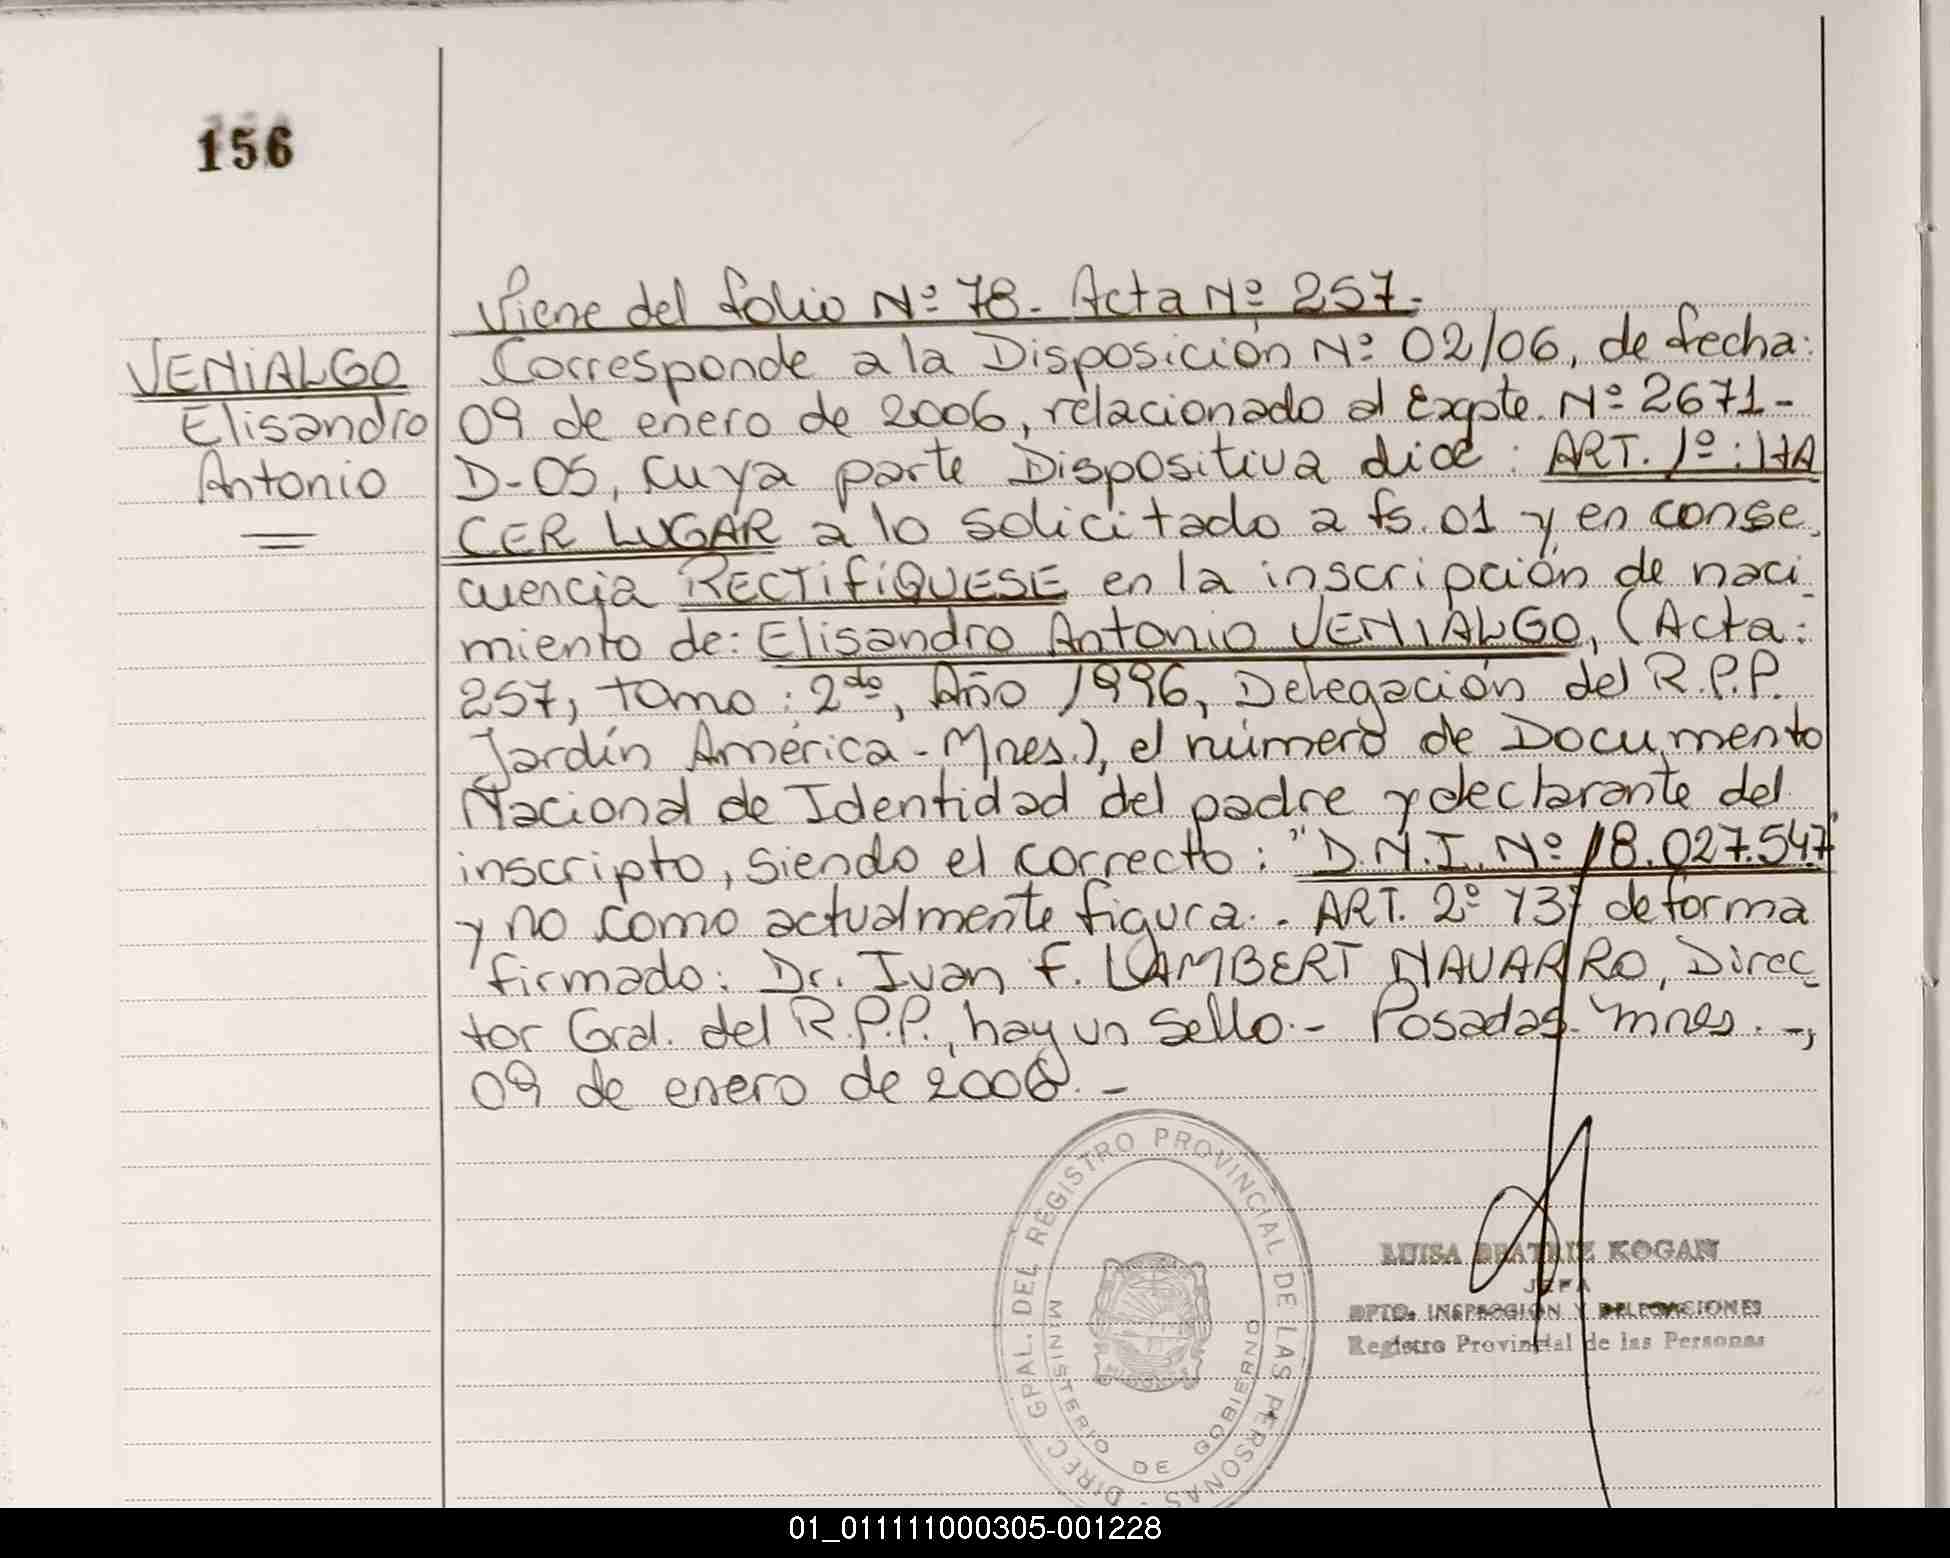 156
Viene del folio Nº 78 - Acta Nº 257.-
VENIALGO
Elisandro
Antonio
Corresponde a la Disposición Nº 02/06, de fecha:
09 de enero de 2006, relacionado al Expte. Nº 2671-
D-05, cuya parte Dispositiva dice: ART. 1º: HA
CER LUGAR a lo solicitado a fs. 01 y en conse
cuencia RECTIFÍQUESE en la inscripción de naci
miento de: Elisandro Antonio VENIALGO, (Acta:
257, tomo: 2do, Año 1996, Delegación del R.P.P.
Jardín América - Mnes.), el número de Documento
Nacional de Identidad del padre y declarante del
inscripto, siendo el correcto: "D.N.I. Nº 18.027.547"
y no como actualmente figura.- ART. 2º Y 3º de forma
firmado: Dr. Ivan F. LAMBERT NAVARRO, Direc
tor Gral. del R.P.P., hay un sello.- Posadas- Mnes.-,
09 de enero de 2006.-
DIREC GPAL. DEL REGISTRO PROVINCIAL DE LAS PERSONAS -
MINISTERIO DE GOBIERNO
LUISA BEATRIZ KOGAN
JEFA
DPTO. INSPECCION Y DELEGACIONES
Registro Provincial de las Personas
01_011111000305-001228